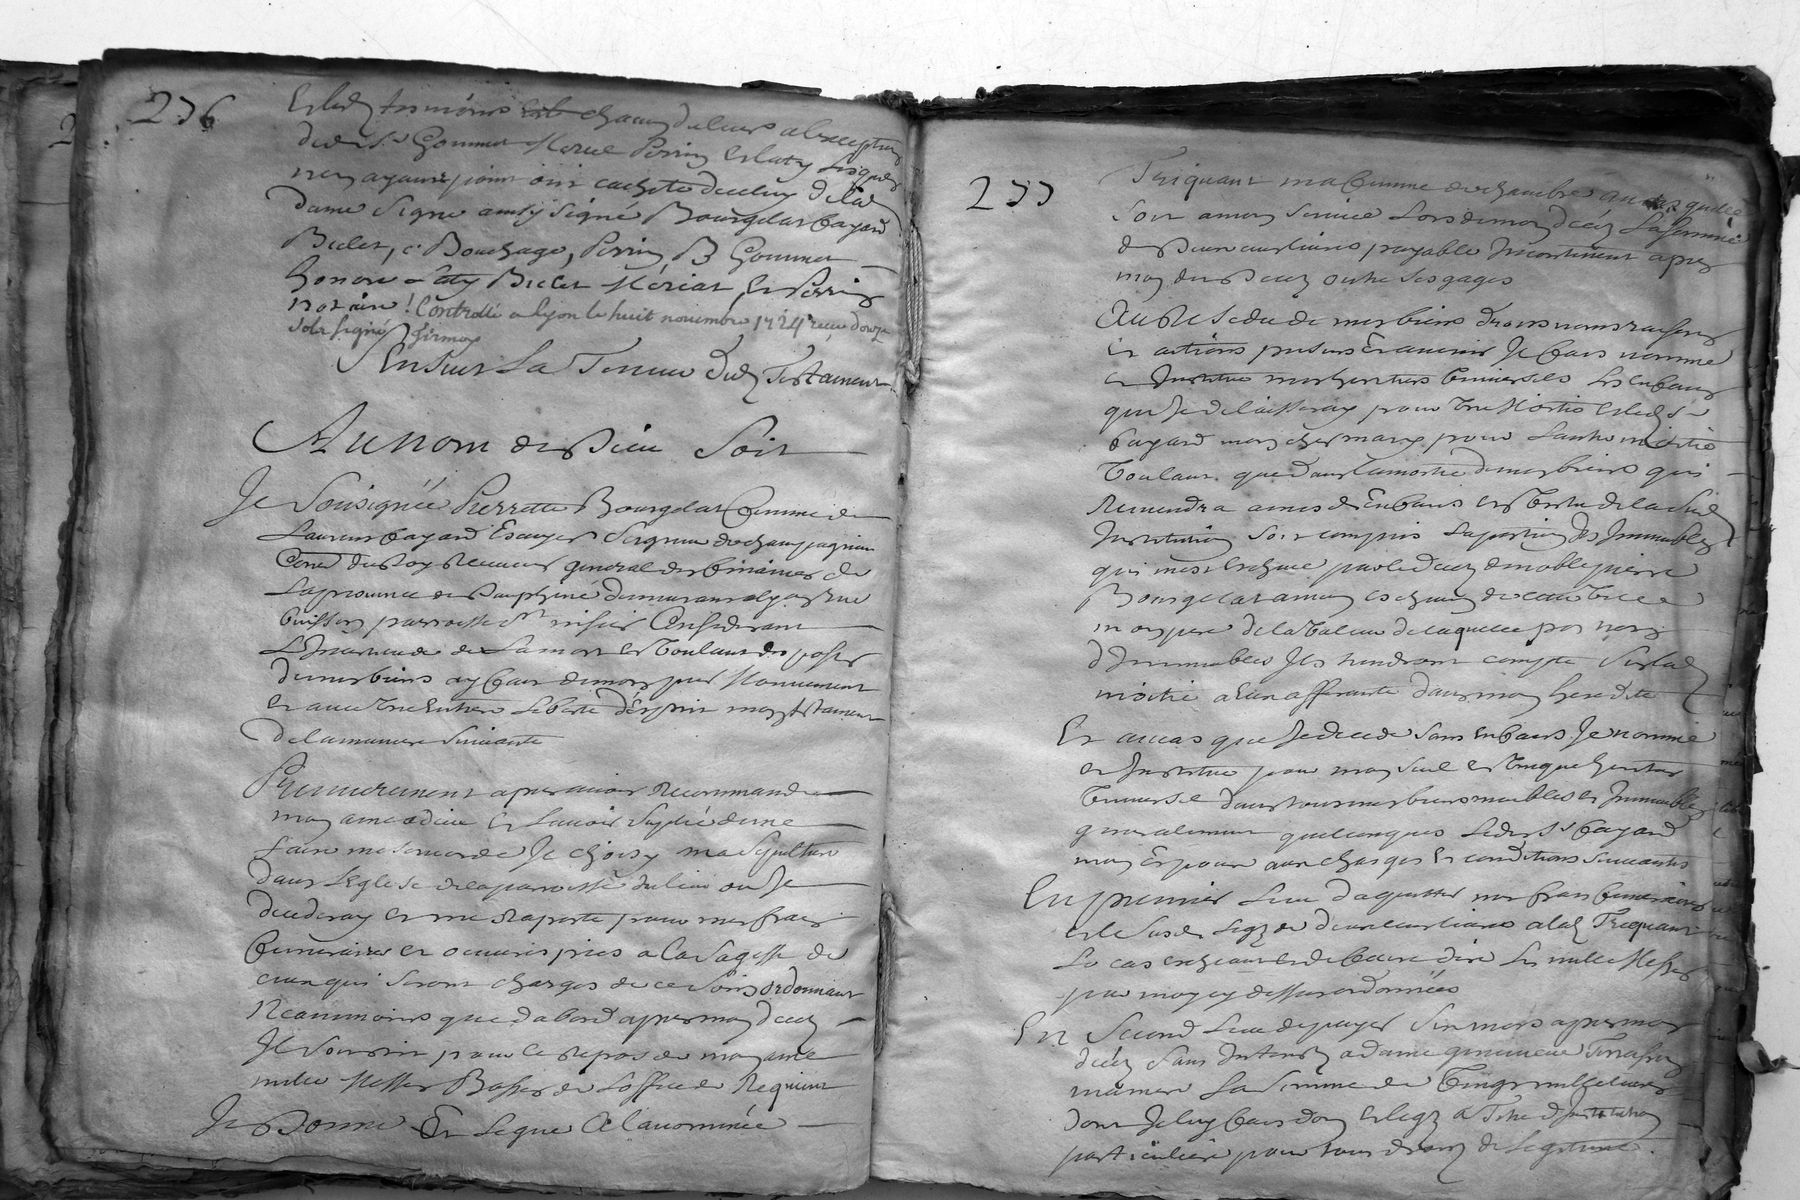 236
tesmoins chacun a lexception
Gommet Meriel Perrin
nen ayant point son cachete de celuy de lad
dame signe ainsy signé Bourgelat Bayard
Bielet, Bouchage, Perrin, B Gommet
honoré Bielet Meriat, et Perrin
notaire! Controllé a Lyon le huit novembre 1724 receu douze
sols signé
Ensuit La Teneur dud Testament
Au nom de Dieu Soit
Je Sousignée Pierrette Bourgelat femme de
Laurent Bayard Escuyer Seigneur de champagnieu
Conr du Roy Receveur general des finances de
La province de Dauphiné demeurant a Lyon rue
Buisson parroisse St nisier Considerant
de La mort et voulant disposer
de mes biens ay fait de mon pur mouvement
et avec une entiere liberté d'esprit mon testament
de la maniere suivante
Premierement apres avoir recommandé
mon ame a dieu et Lavoir suplié de me
faire misericorde Je choisy ma sepulture
dans Leglise de la parroisse du lieu ou Je
decederay et me raporte pour mes frais
funeraires et oeuvres pies a la sagesse de
ceux qui seront chargés de ce soin ordonnant
Neanmoins que dabord apres mon deces
Il soit dit pour le repos de mon ame
mille Messes Basses de Loffice de Requiem
Je Donne Et Legue A la nommée
233
Triquant ma femme de chambre au cas quelle
soit a mon service Lors de mon deces La somme
de Deux cent livres payable Incontinent apres
mon deces outre ses gages
Au Residu de mes biens droits noms raisons
et actions presens et avenir Je fais nomme
et Institue mes heritiers universels Les enfans
que Je delaisseray pour une Moitié et led sr
Bayard mon cher mary pour Lautre moitié
voulant que dans la moitié de mes biens qui
Reviendra a mes d enfans en vertu de la susd
Institution soit compris La portion des Immeubles
qui mest echeue par le deces de noble pierre
Bourgelat ancien echevin de cette ville
mon pere de la valeur de laquelle portion
d Immeubles Ils tiendront compte sur lad
moitié a eux afferante dans mon heredité
Et au cas que Je decede sans enfans Je nomme
et Institue pour mon seul et unique heritier
universel dans tous mes biens meubles et Immeubles
generalement quelconques Led sr Bayard
mon Epoux aux charges et conditions suivantes
En premier Lieu daquitter mes frais funeraires
et le susd Legz de deux cent livres a lad Triquant
Le cas echeant et de faire dire Les mille Messes
par moy cy dessus ordonnées
En Second Lieu de payer six mois apres mon
deces sans Interest a dame
ma mere La somme de vingt mille livres
dont Je luy fais don et legz a titre d Institution
particuliere pour tous droits de Legitime.